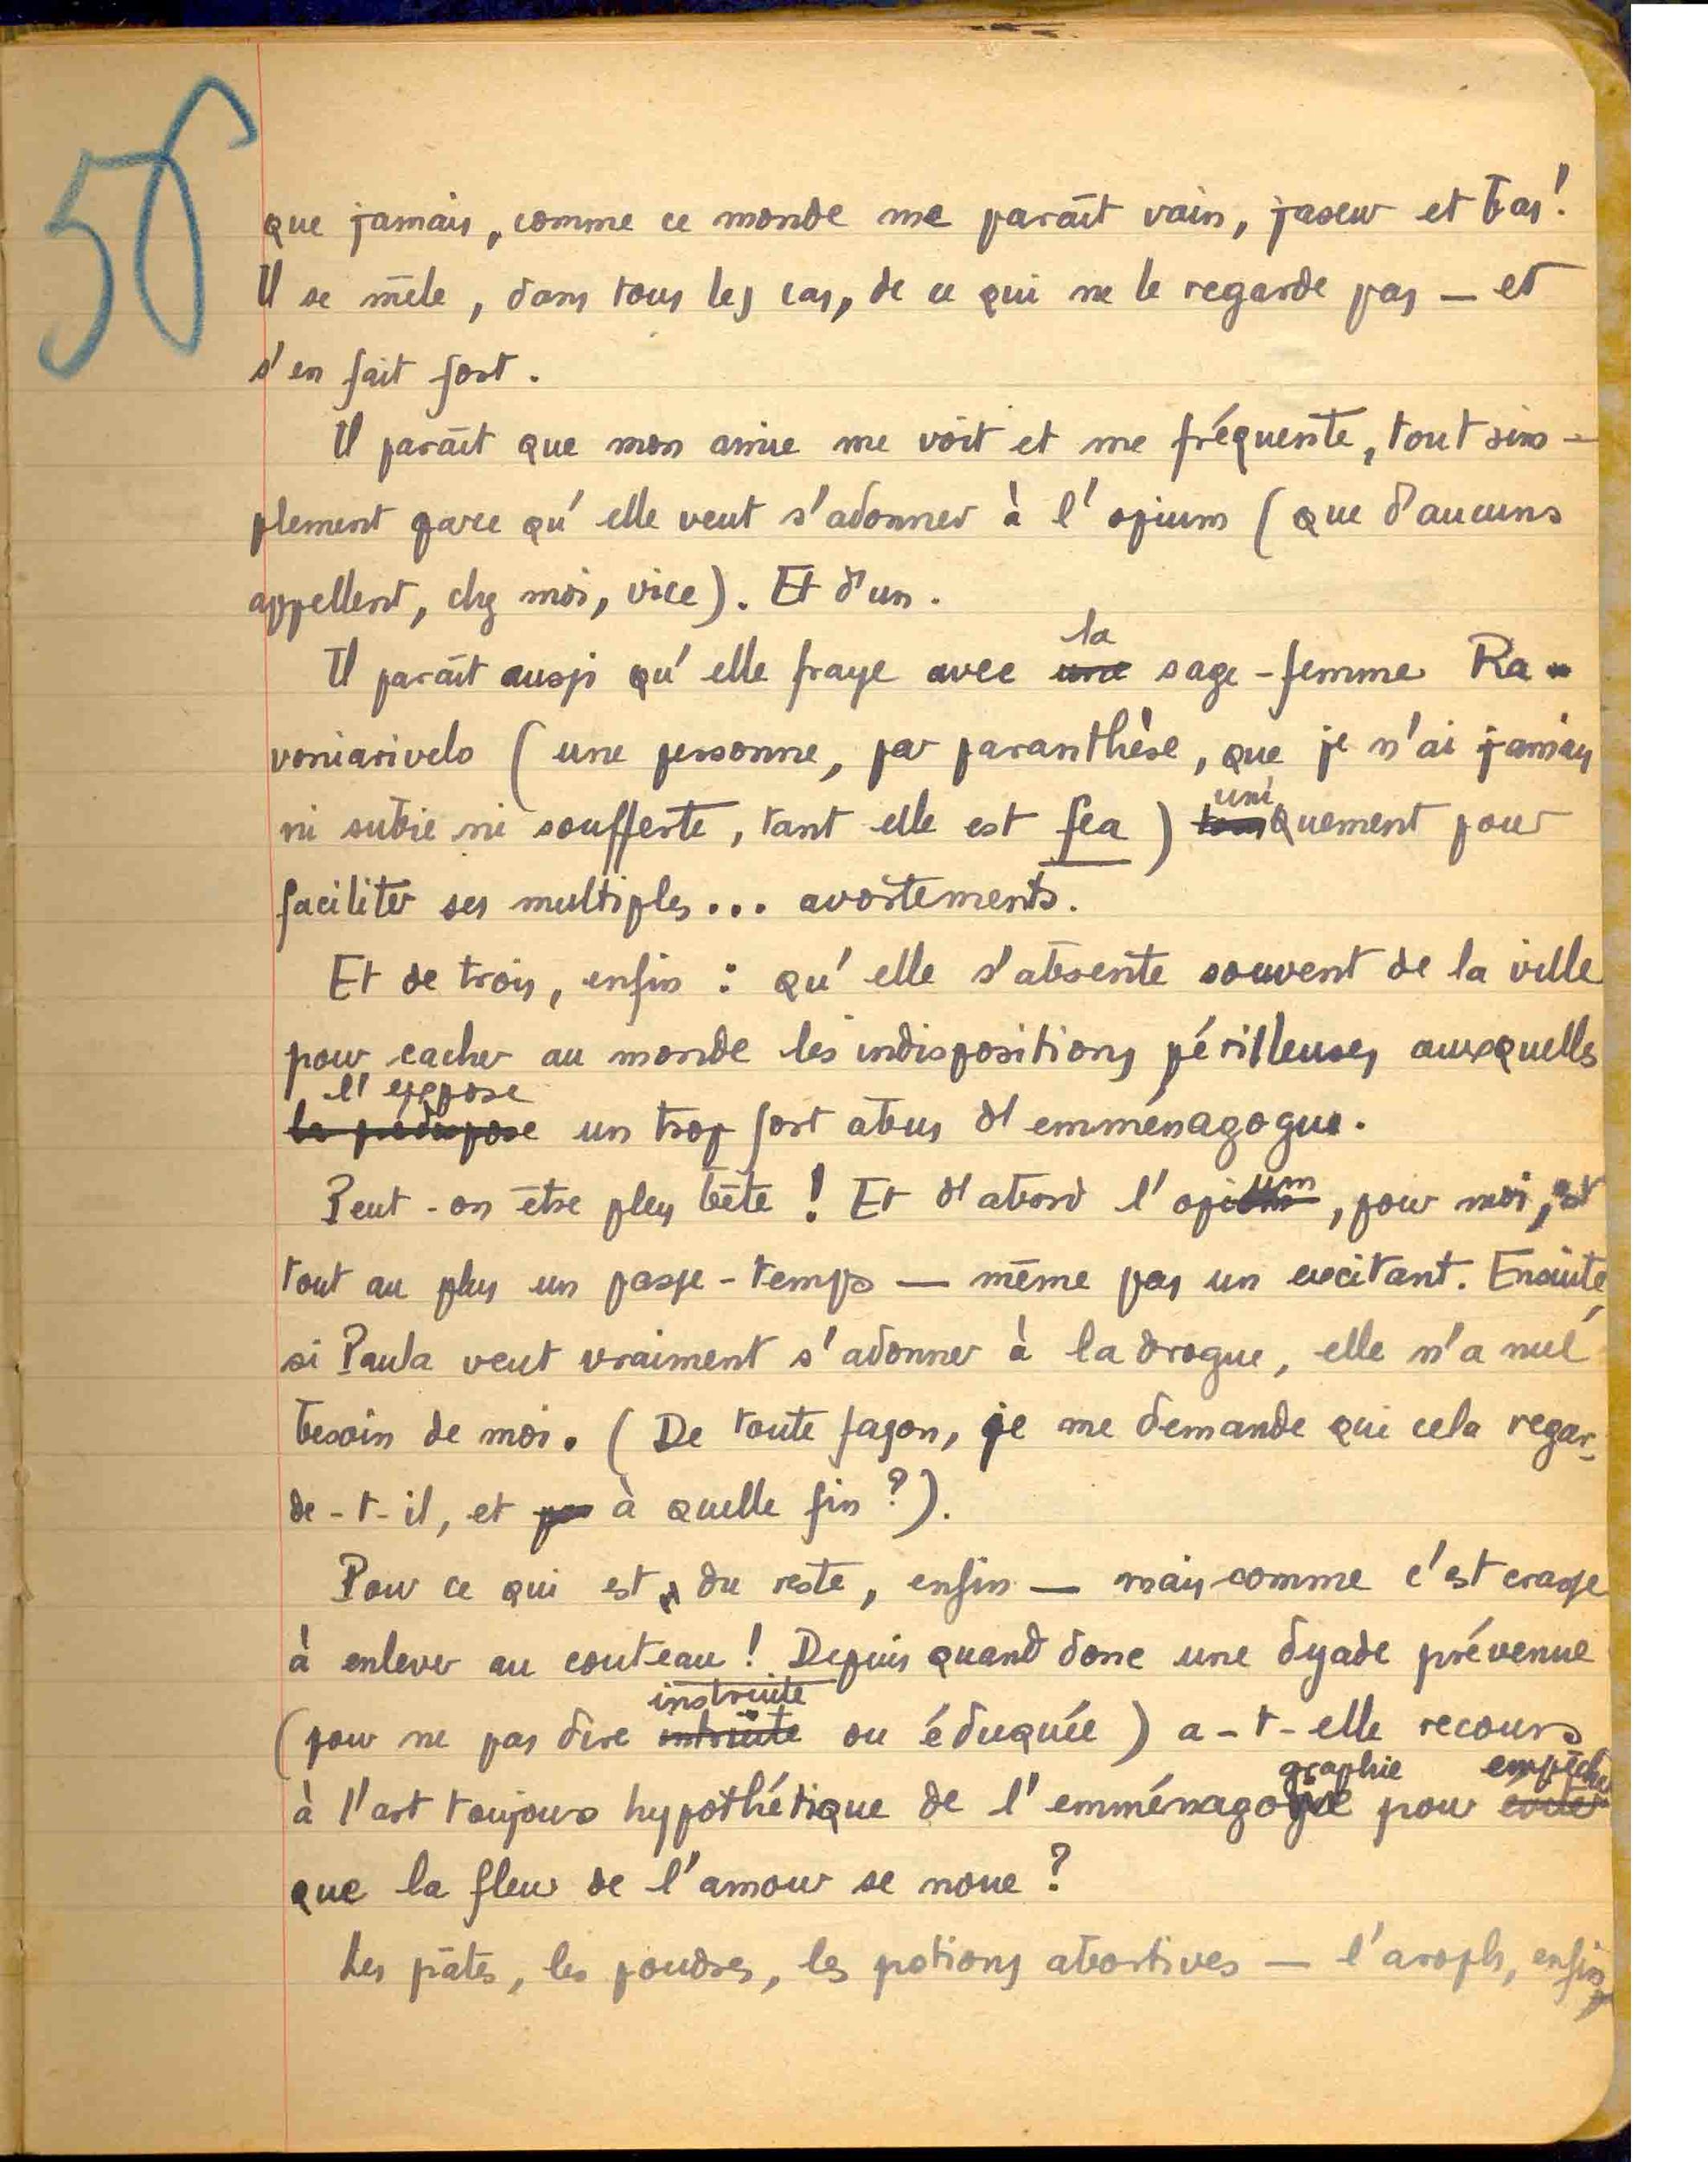 56
que jamais, comme ce monde me paraît vain, jaseur et bas!
Il se mêle, dans tous les cas, de ce qui ne le regarde pas — et
s'en fait fort.
Il paraît que mon amie me voit et me fréquente, tout sim-
plement parce qu'elle veut s'adonner à l'opium (que d'aucuns
appellent, chez moi, vice). Et d'un.
la
Il paraît aussi qu'elle fraye avec une sage-femme Ra-
voniarivelo (une personne, par paranthèse, que je n'ai jamais
uni
ni subie ni soufferte, tant elle est fea) quement pour
faciliter ses multiples... avortements.
Et de trois, enfin : qu'elle s'absente souvent de la ville
pour cacher au monde les indispositions périlleuses auxquelles
l'expose
la prédispose un trop fort abus d'emménagogue.
Peut-on être plus bête! Et d'abord l'opium, pour moi, est
tout au plus un passe-temps — même pas un excitant. Ensuite,
si Paula veut vraiment s'adonner à la drogue, elle n'a nul
besoin de moi. (De toute façon, je me demande qui cela regar-
de-t-il, et à quelle fin?).
Pour ce qui est du reste, enfin — mais comme c'est crasse
à enlever au couteau! Depuis quand donc une dyade prévenue
instruite
(pour ne pas dire ou éduquée) a-t-elle recours
graphie empêcher
à l'art toujours hypothétique de l'emménagogue pour éviter
que la fleur de l'amour se noue?
Les pâtes, les poudres, les potions abortives — l'aroph, enfin,